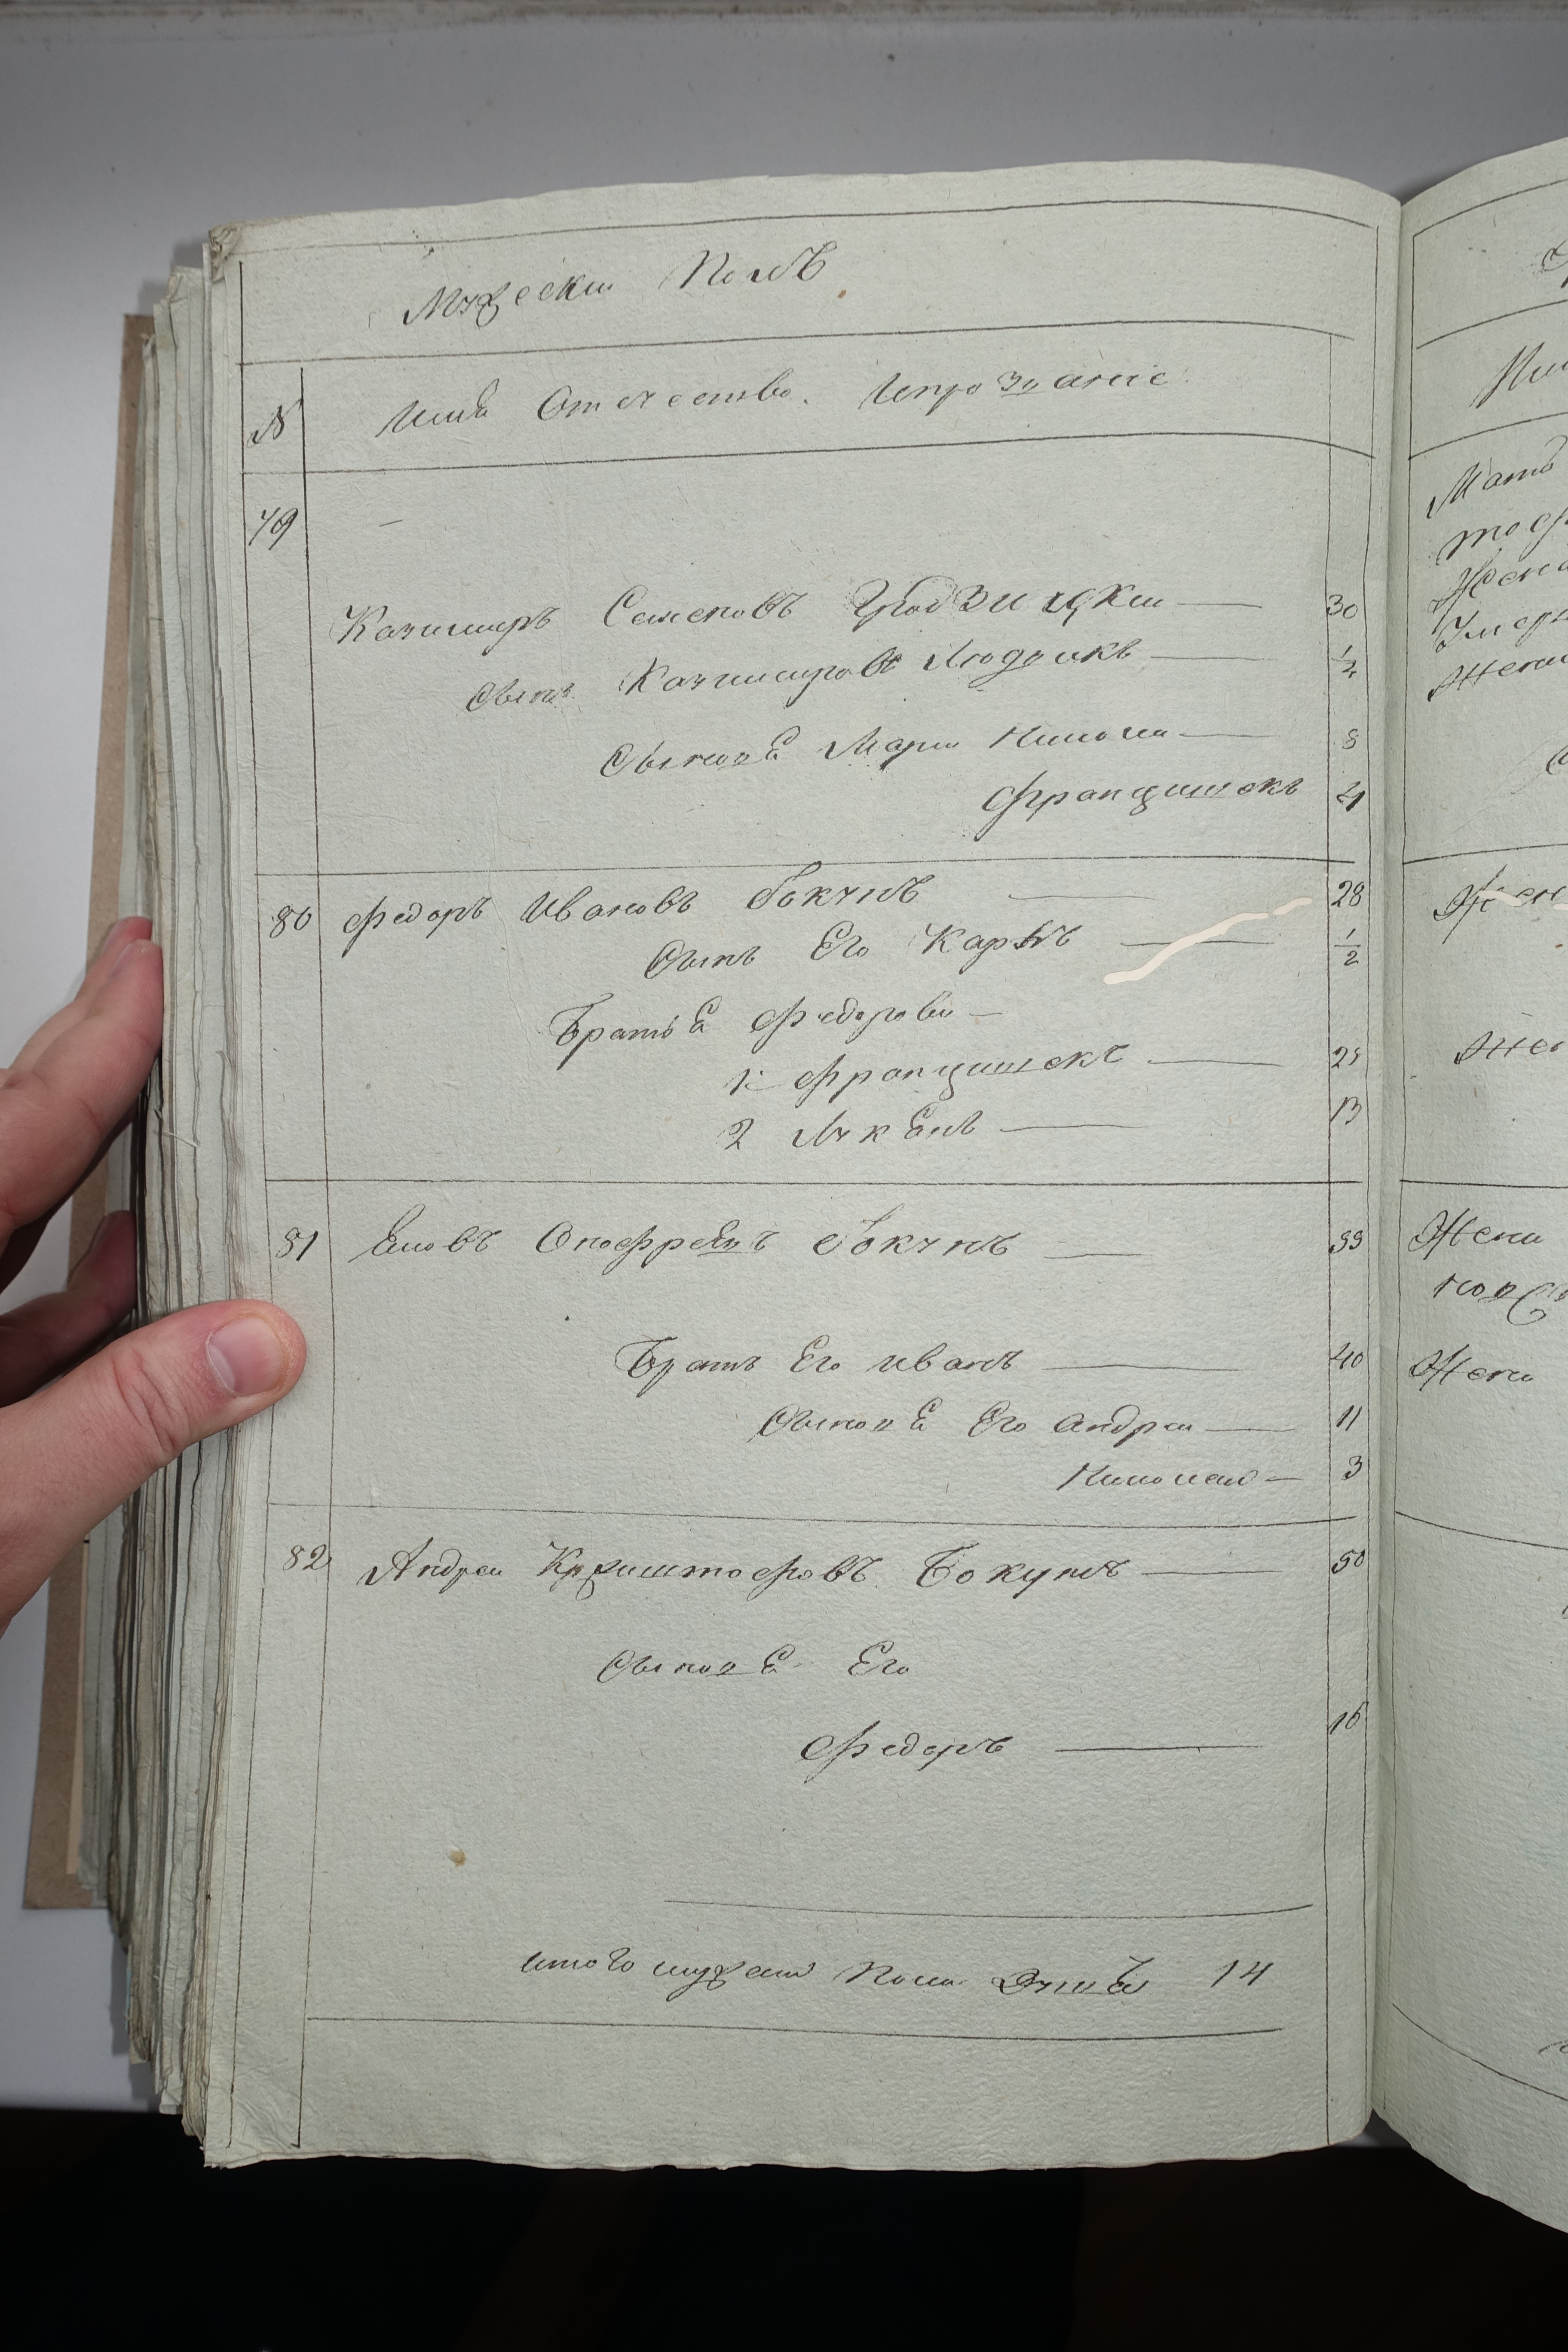 Мужески Полъ
№ Имя Отечество. Ипрозвание.
79 —
Казимиръ Семеновъ Гродзицки — 30
Сынъ Казимировъ Людвикъ — 1/2
Сыновя Мацея Николай — 8
Францишекъ 4
80 Федоръ Ивановъ Бокунъ — 28
Сынъ Его Карлъ — 1/2
Братья Федоровы —
1: Францишекъ — 25
2 Лукянъ — 13
81 Онофреевъ Бокунъ — 55
Братъ Его Иванъ — 40
Сыновя Его Андреи — 11
Николай — 3
82 Андреи Криштофовъ Бокунъ — 50
Сыновя Его
Федоръ — 16
итого мужска Пола Душъ 14
Мать
Жена
Жена
Жена
Жена